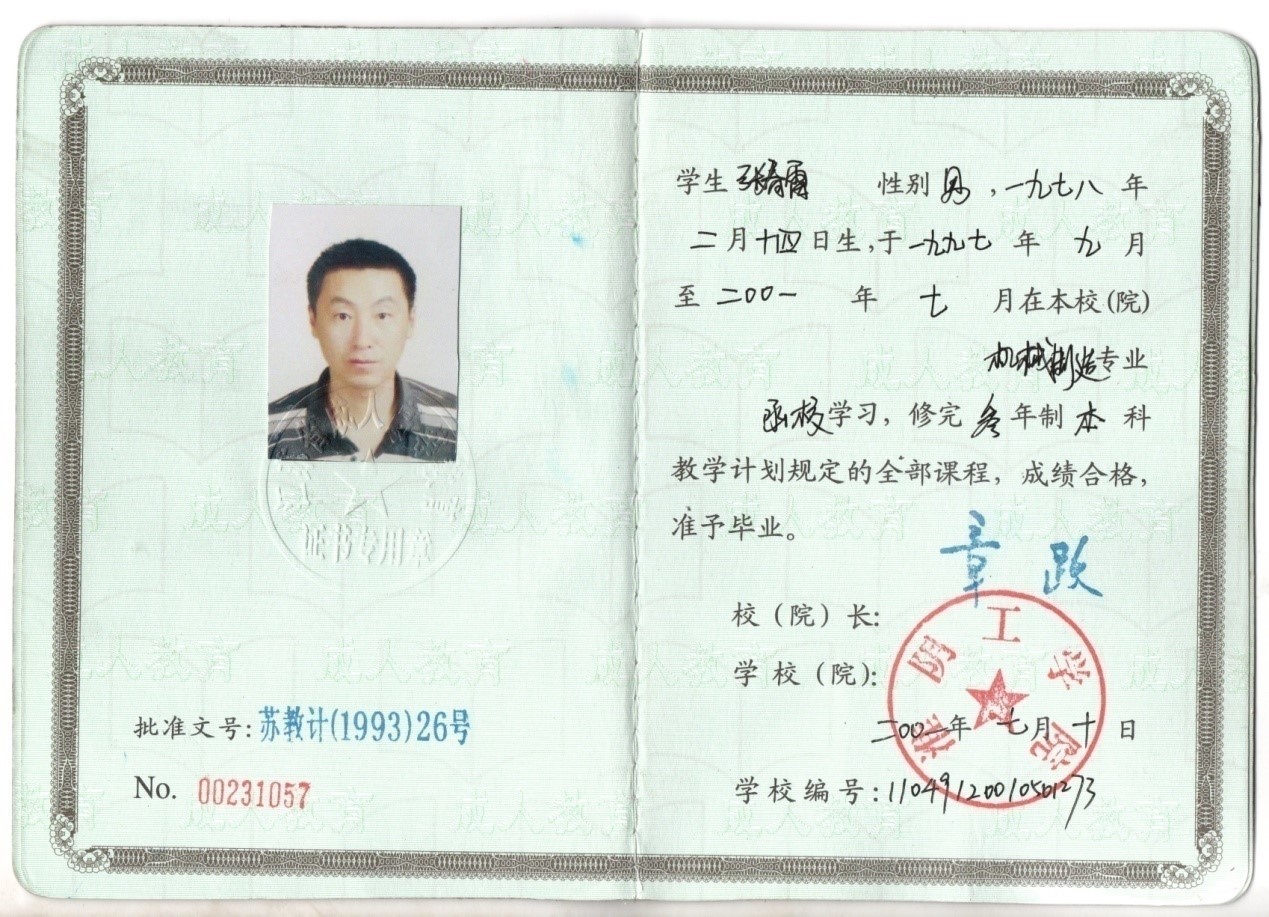 批准文号:苏教计(1993)26号
No. 00231057
证书专用章
学生 张春雷 性别 男 ,一九七八 年
二 月 十四 日生,于 一九九七 年 九 月
至 二00一 年 七 月在本校(院)
机械制造专业
函授学习, 修完 叁 年制 本 科
教学计划规定的全部课程, 成绩合格,
准予毕业。
章 跃
校(院)长:
学校(院):
淮阴工学院
二00一年 七月 十 日
学校编号:11049120010501273
成人教育